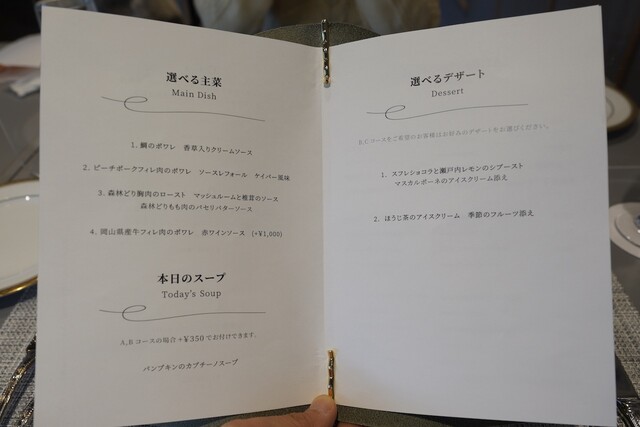 選べる主菜
Main Dish
1. 鯛のポワレ　香草入りクリームソース
2. ピーチポークフィレ肉のポワレ　ソースレフォール　ケイパー風味
3. 森林どり胸肉のロースト　マッシュルームと椎茸のソース
森林どりもも肉のパセリバターソース
4. 岡山県産牛フィレ肉のポワレ　赤ワインソース　(+¥1,000)
本日のスープ
Today's Soup
A,Bコースの場合+¥350でお付けできます。
パンプキンのカプチーノスープ
選べるデザート
Dessert
B,Cコースをご希望のお客様はお好みのデザートをお選びください。
1. スフレショコラと瀬戸内レモンのシブースト
マスカルポーネのアイスクリーム添え
2. ほうじ茶のアイスクリーム　季節のフルーツ添え